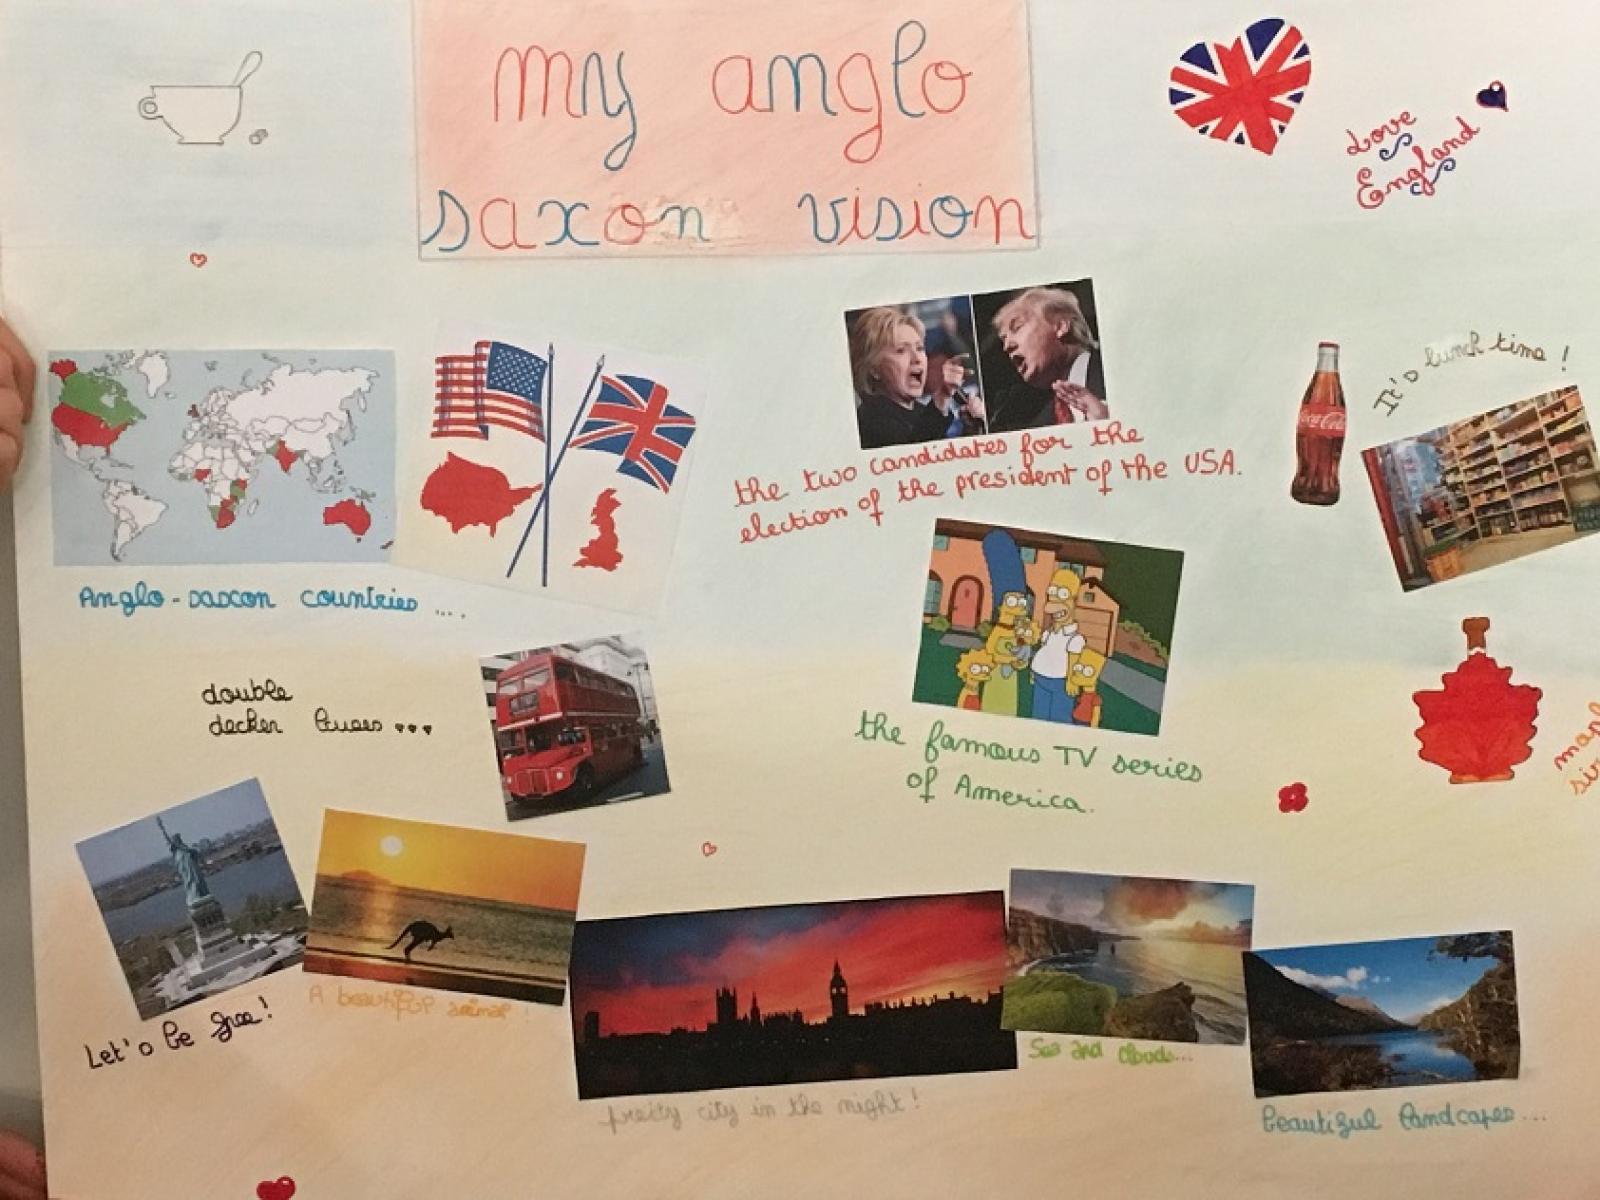 my anglo
saxon vision
Love
England
It's lunch time !
Coca-Cola
the two candidates for the
election of the president of the USA.
Anglo-saxon countries ....
the famous TV series
of America.
double
decker buses ...
Let's be free!
A beautiful animal !
pretty city in the night!
Sea and clouds...
beautiful landcapes...